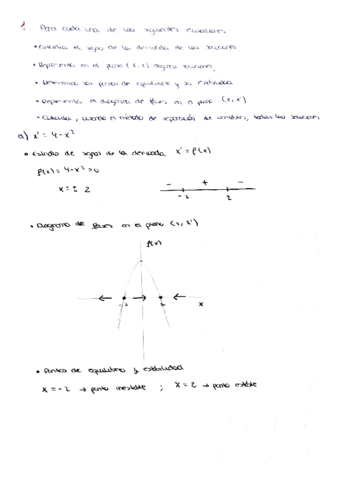 1. Para cada una de las siguientes ecuaciones
• Estudia el signo de la derivada de las soluciones
• Representa en el plano (t, x) algunas soluciones
• Determina los puntos de equilibrio y su estabilidad
• Representa el diagrama de fases en el plano (x, x')
• Calcula, usando el método de separación de variables, todas las soluciones
a) x' = 4 - x²
• Estudio de signos de la derivada x' = f(x)
f(x) = 4 - x² = 0
x = ± 2
- + -
-2 2
• Diagrama de fases en el plano (x, x')
f(x)
-2 2 x
• Puntos de equilibrio y estabilidad
x = -2 → punto inestable ; x = 2 → punto estable